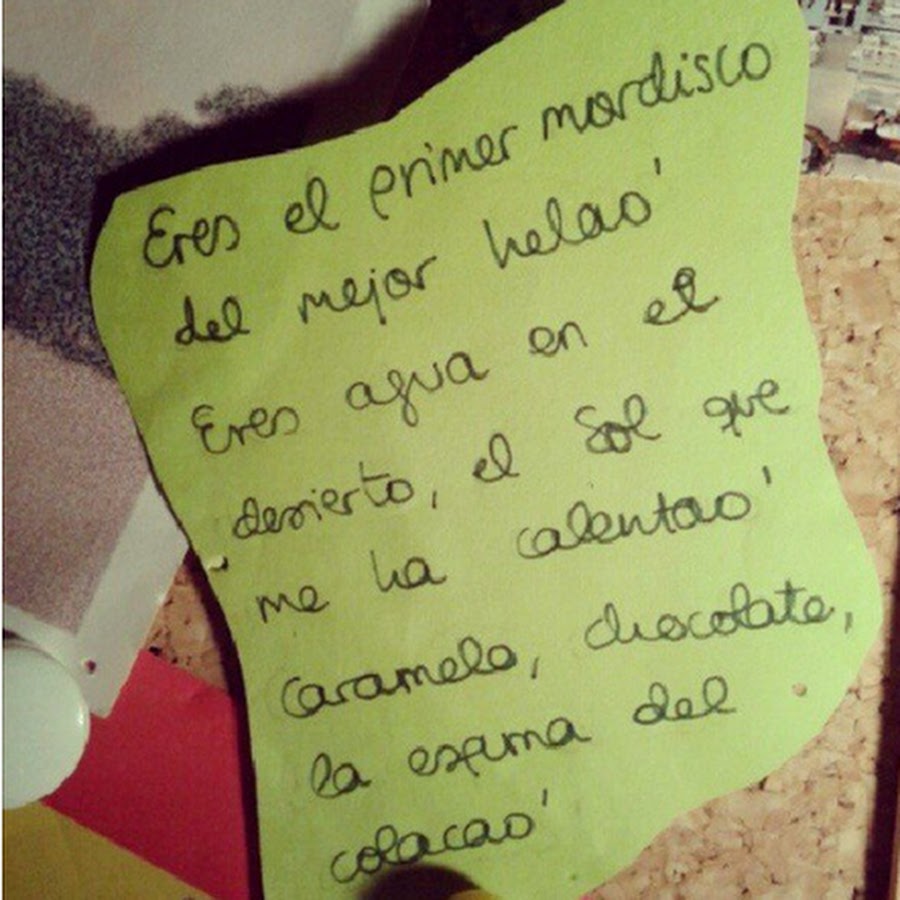 Eres el primer mordisco
del mejor helao'
Eres agua en el
desierto, el Sol que
me ha calentao'
Caramelo, chocolate,
la espuma del
colacao'